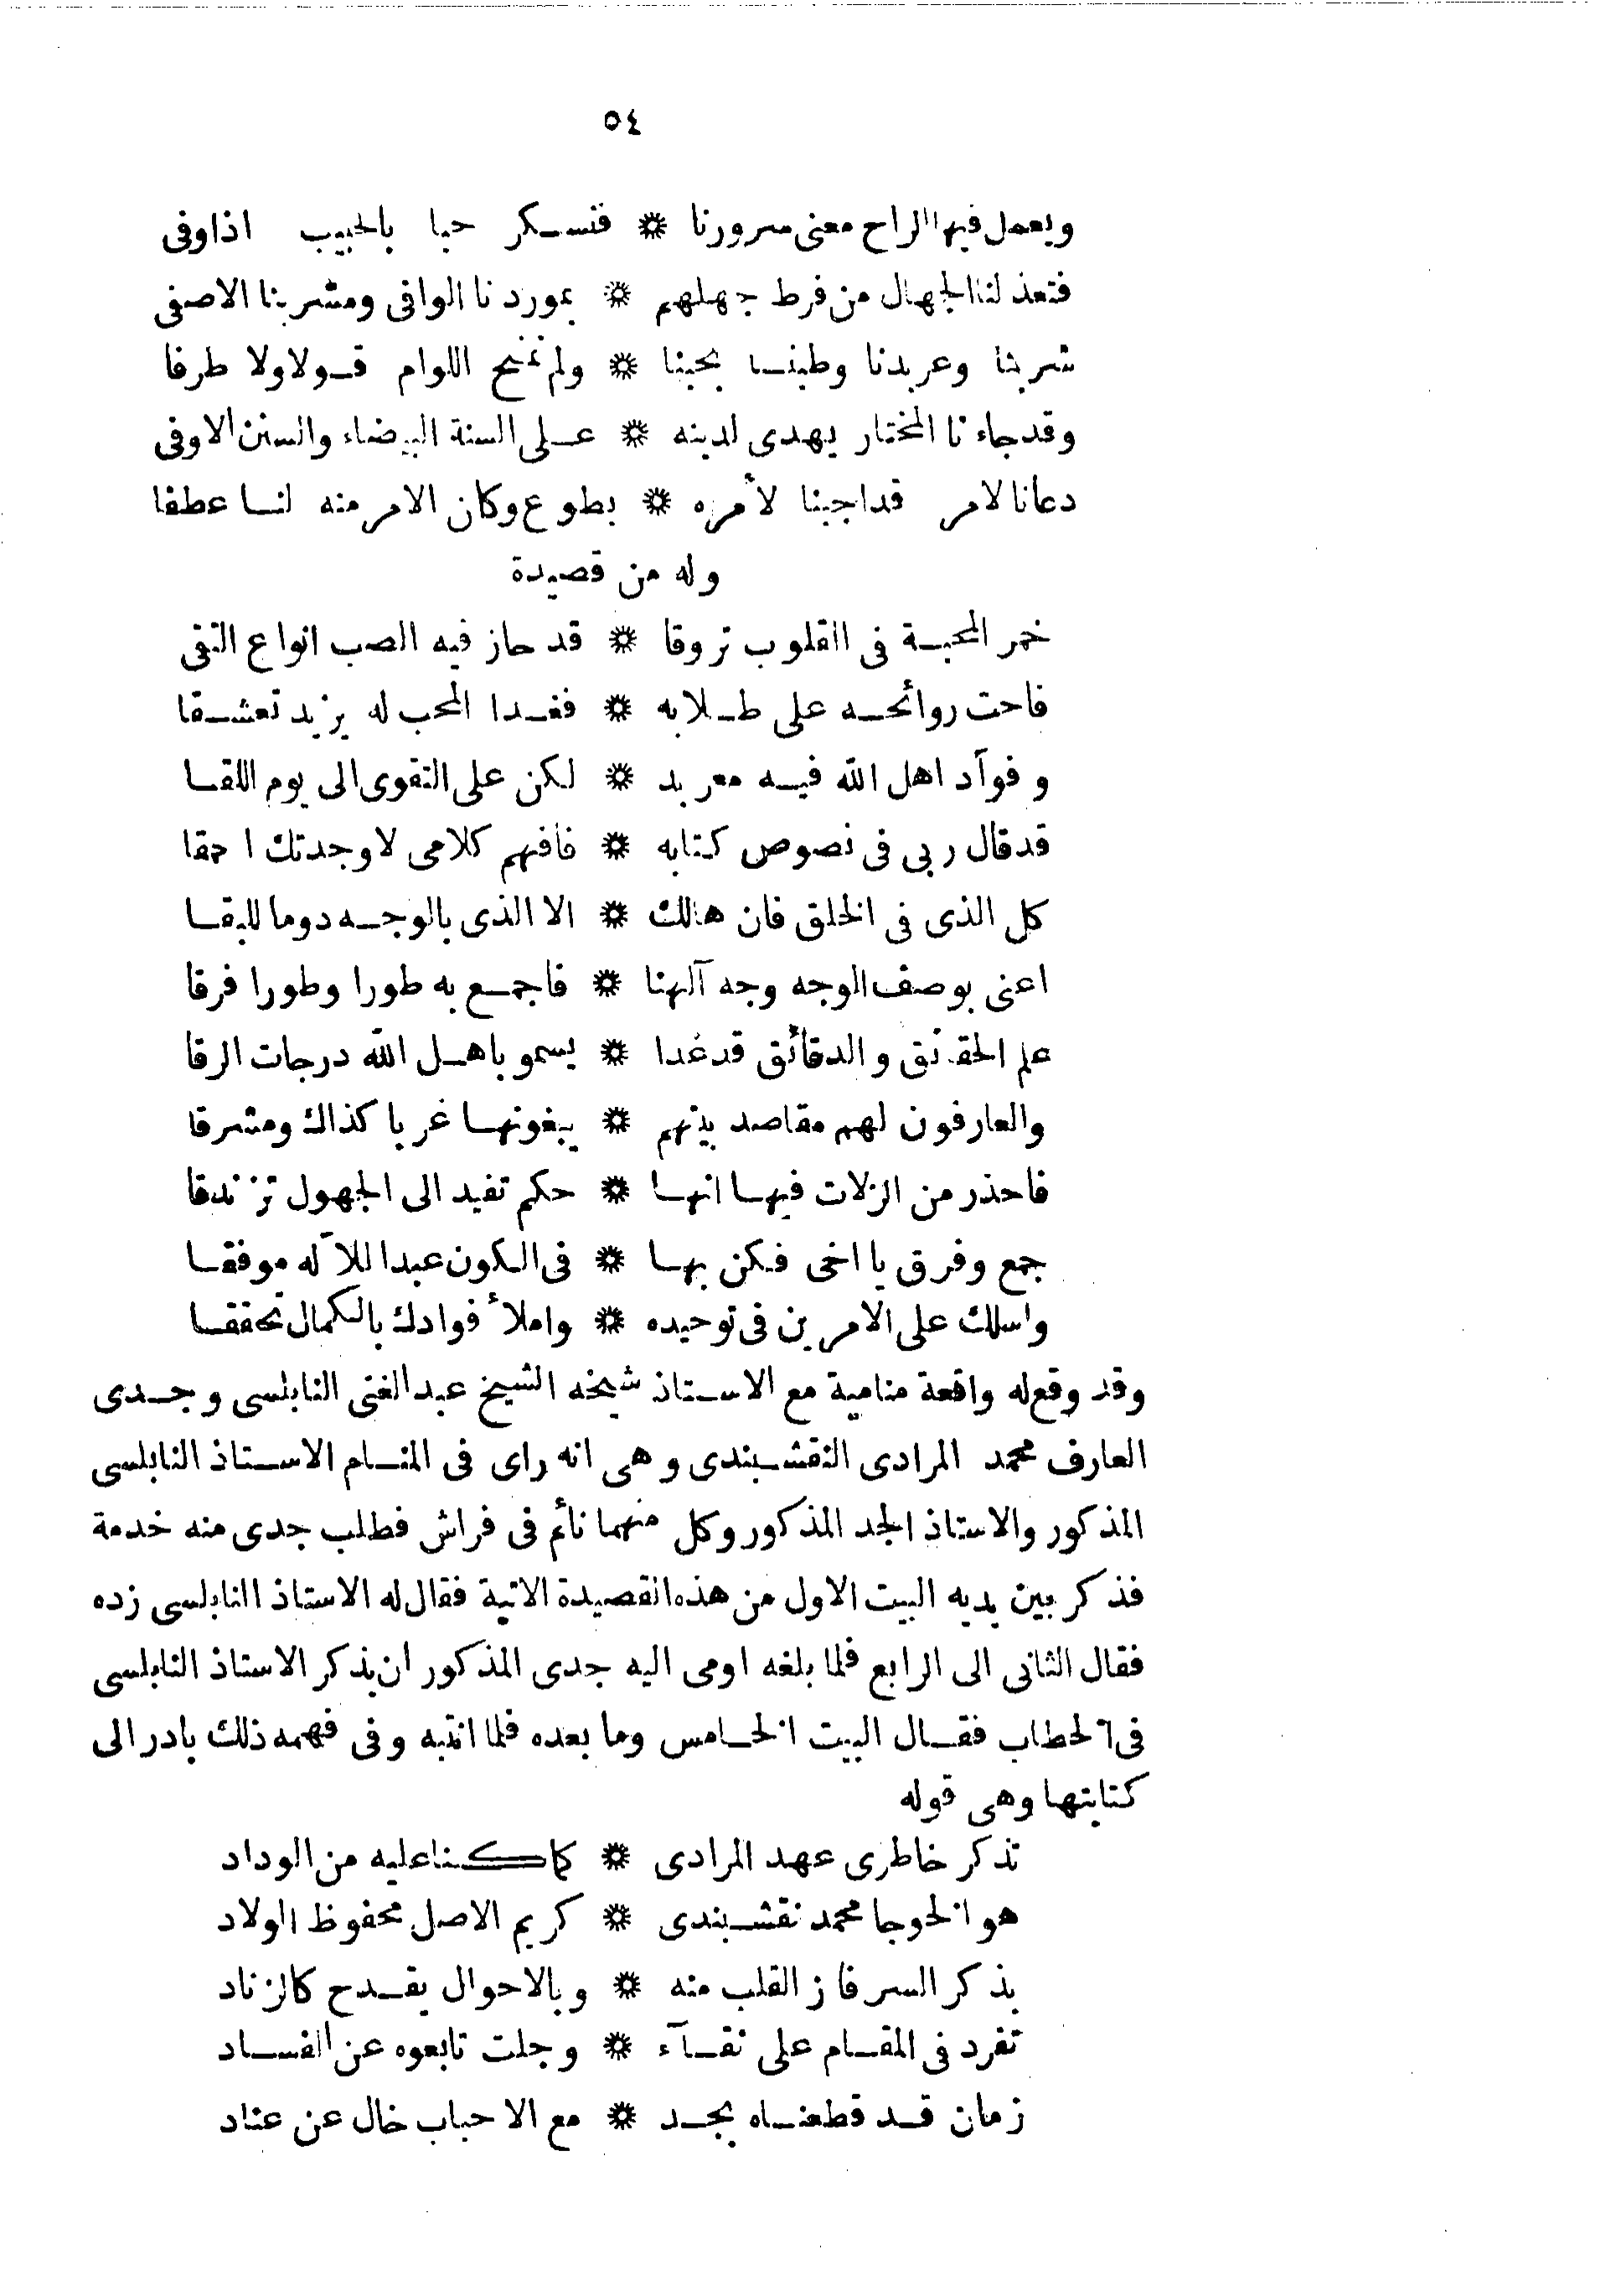 ٥٤
ويعمل فيها الراح معنى سرورنا * فنسكر حبا بالحبيب اذا وفى
فتعذلنا الجهال من فرط جهلهم * بموردنا الوافى ومشربنا الاصفى
شربنا وعربدنا وطبنا بحبنا * ولم نمنح اللوام قولا ولا طرفا
وقد جاءنا المختار يهدى لدينه * على السنة البيضاء والسنن الاوفى
دعانا لامر قد اجبنا لأمره * بطوع وكان الامر منه لنا عطفا
وله من قصيدة
خمر المحبة فى القلوب تروقا * قد حاز فيه الصب انواع التقى
فاحت روائحه على طلابه * فغدا المحب له يزيد تعشقا
وفوآد اهل الله فيه معربد * لكن على التقوى الى يوم اللقا
قد قال ربى فى نصوص كتابه * فافهم كلامى لا وجدتك احمقا
كل الذى فى الخلق فان هالك * الا الذى بالوجه دوما للبقا
اعنى بوصف الوجه وجه آلهنا * فاجمع به طورا وطورا فرقا
علم الحقائق والدقائق قد غدا * يسمو باهل الله درجات الرقا
والعارفون لهم مقاصد بينهم * يبغونها غربا كذاك ومشرقا
فاحذر من الزلات فيها انها * حكم تفيد الى الجهول تزندقا
جمع وفرق يا اخى فكن بها * فى الكون عبدا للآله موفقا
واسلك على الامرين فى توحيده * واملأ فوادك بالكمال تحققا
وقد وقع له واقعة منامية مع الاستاذ شيخه الشيخ عبد الغنى النابلسى وجدى
العارف محمد المرادى النقشبندى وهى انه راى فى المنام الاستاذ النابلسى
المذكور والاستاذ الجد المذكور وكل منهما نائم فى فراش فطلب جدى منه خدمة
فذكر بين يديه البيت الاول من هذه القصيدة الاتية فقال له الاستاذ النابلسى زده
فقال الثانى الى الرابع فلما بلغه اومى اليه جدى المذكور ان يذكر الاستاذ النابلسى
فى الخطاب فقال البيت الخامس وما بعده فلما انتبه وفى فهمه ذلك بادر الى
كتابتها وهى قوله
تذكر خاطرى عهد المرادى * كما كنا عليه من الوداد
هو الخوجا محمد نقشبندى * كريم الاصل محفوظ الولاد
بذكر السر فاز القلب منه * وبالاحوال يقدح كالزناد
تفرد فى المقام على نقآء * وجلت تابعوه عن الفساد
زمان قد قطعناه بجد * مع الاحباب خال عن عناد